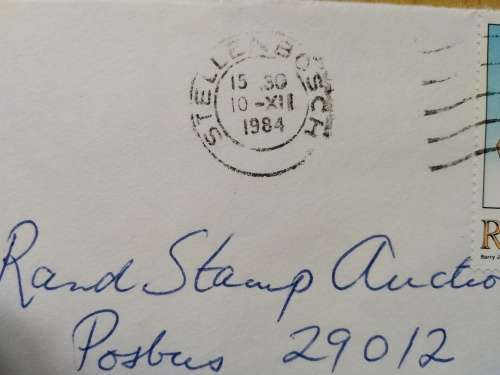 STELLENBOSCH
15.30
10-XII
1984
R
Barry J
Rand Stamp Auctio
Posbus 29012